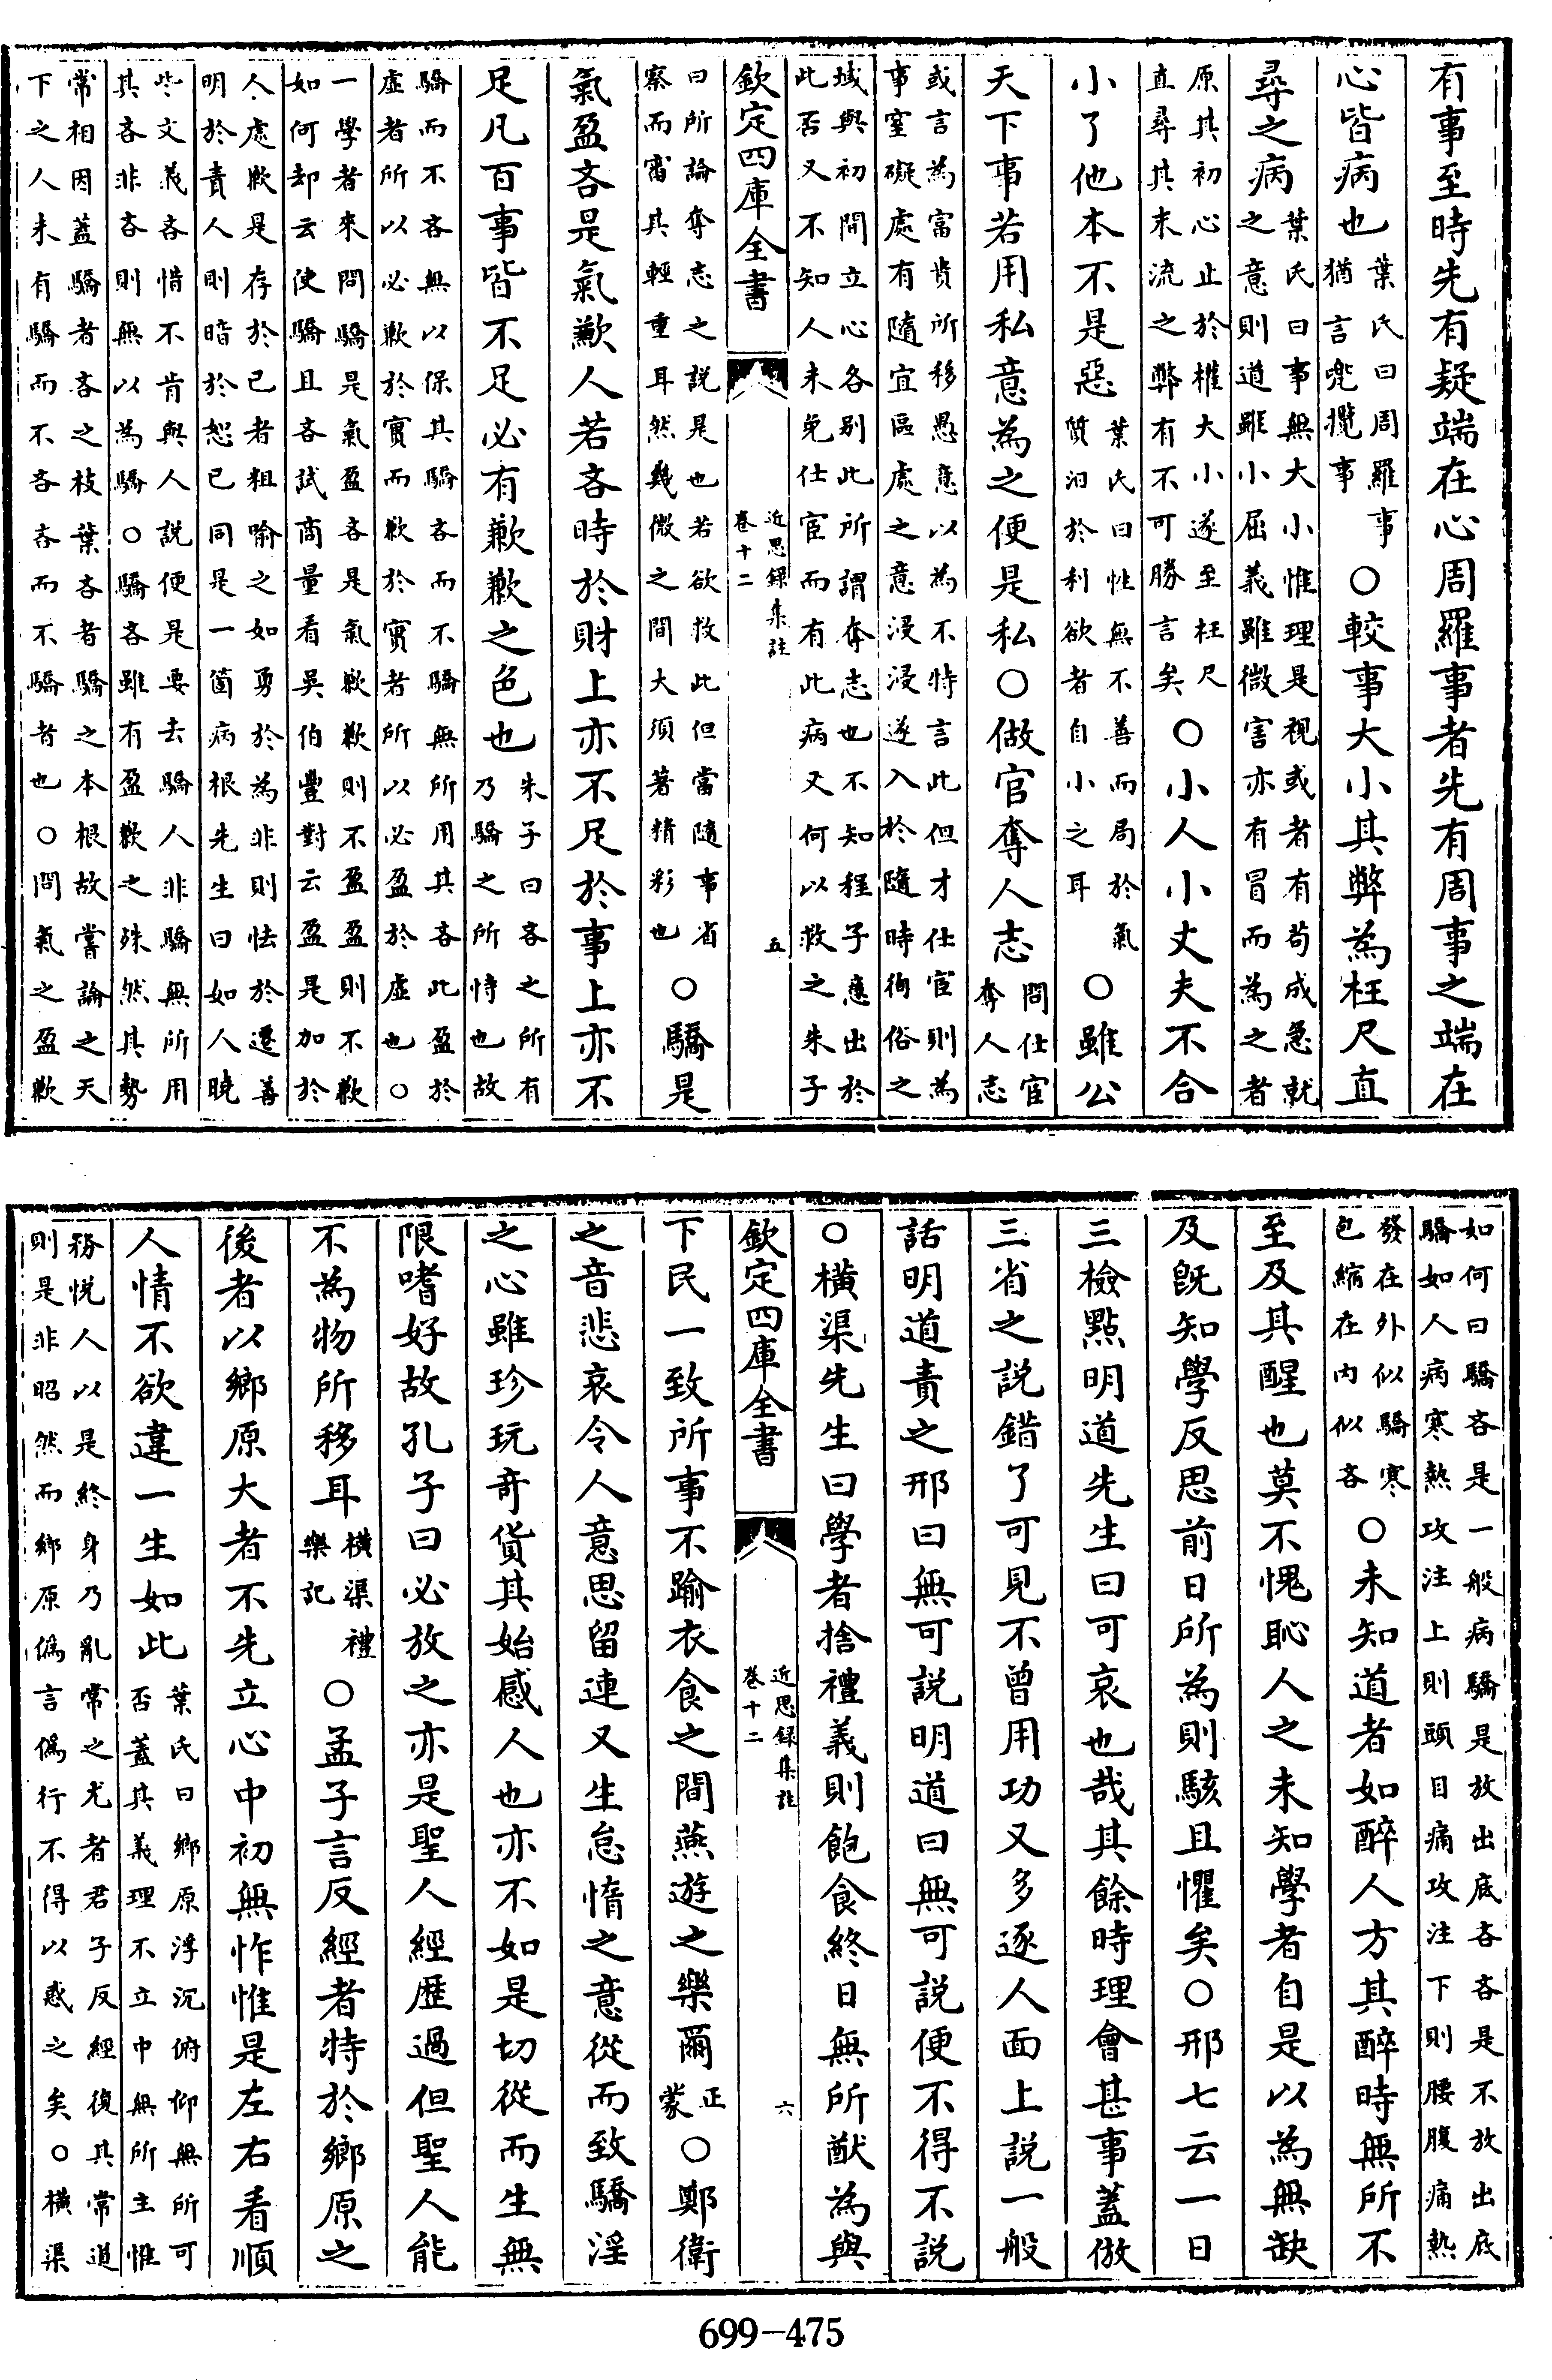 有事至時先有疑端在心周羅事者先有周事之端在
心皆病也葉氏曰周羅事猶言兜攬事○較事大小其弊為枉尺直
尋之病葉氏曰事無大小惟理是視或者有苟成急就之意則道雖小屈義雖微害亦有冒而為之者
原其初心止於權大小遂至枉尺直尋其末流之弊有不可勝言矣○小人小丈夫不合
小了他本不是惡葉氏曰性無不善而局於氣質汩於利欲者自小之耳○雖公
天下事若用私意為之便是私○做官奪人志問仕宦奪人志
或言為富貴所移愚意以為不特言此但才仕宦則為事窒礙處有隨宜區處之意浸浸遂入於隨時徇俗之
域與初間立心各別此所謂奪志也不知程子應出於此否又不知人未免仕宦而有此病又何以救之朱子
欽定四庫全書
近思錄集註
卷十二
五
曰所論奪志之說是也若欲救此但當隨事省察而審其輕重耳然幾微之間大須著精彩也○驕是
氣盈吝是氣歉人若吝時於財上亦不足於事上亦不
足凡百事皆不足必有歉歉之色也朱子曰吝之所有乃驕之所恃也故
驕而不吝無以保其驕吝而不驕無所用其吝此盈於虛者所以必歉於實而歉於實者所以必盈於虛也○
一學者來問驕是氣盈吝是氣歉歉則不盈盈則不歉如何却云使驕且吝試商量看吳伯豐對云盈是加於
人處歉是存於已者粗喻之如勇於為非則怯於遷善明於責人則暗於恕已同是一箇病根先生曰如人曉
些文義吝惜不肯與人說便是要去驕人非驕無所用其吝非吝則無以為驕○驕吝雖有盈歉之殊然其勢
常相因蓋驕者吝之枝葉吝者驕之本根故嘗論之天下之人未有驕而不吝吝而不驕者也○問氣之盈歉
如何曰驕吝是一般病驕是放出底吝吝是不放出底驕如人病寒熱攻注上則頭目痛攻注下則腰腹痛熱
發在外似驕寒包縮在內似吝○未知道者如醉人方其醉時無所不
至及其醒也莫不愧恥人之未知學者自是以為無缺
及旣知學反思前日所為則駭且懼矣○邢七云一日
三檢點明道先生曰可哀也哉其餘時理會甚事蓋倣
三省之說錯了可見不曾用功又多逐人面上說一般
話明道責之邢曰無可說明道曰無可說便不得不說
○橫渠先生曰學者捨禮義則飽食終日無所猷為與
欽定四庫全書
近思錄集註
卷十二
六
下民一致所事不踰衣食之間燕遊之樂爾正蒙○鄭衛
之音悲哀令人意思留連又生怠惰之意從而致驕淫
之心雖珍玩奇貨其始感人也亦不如是切從而生無
限嗜好故孔子曰必放之亦是聖人經歷過但聖人能
不為物所移耳橫渠禮樂記○孟子言反經者特於鄉原之
後者以鄉原大者不先立心中初無怍惟是左右看順
人情不欲違一生如此葉氏曰鄉原浮沉俯仰無所可否蓋其義理不立中無所主惟
務悅人以是終身乃亂常之尤者君子反經復其常道則是非昭然而鄉原偽言偽行不得以惑之矣○橫渠
699-475